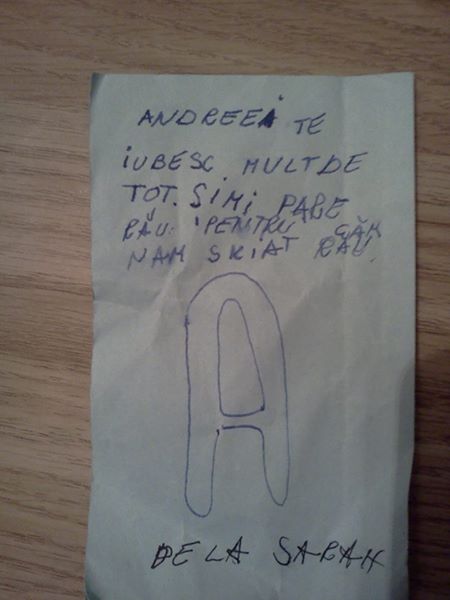 ANDREEA TE
IUBESC. MULT DE
TOT. SIMI PARE
RĂU PENTRU CĂM
NAM SKIAT RĂU.
A
DE LA SARAH